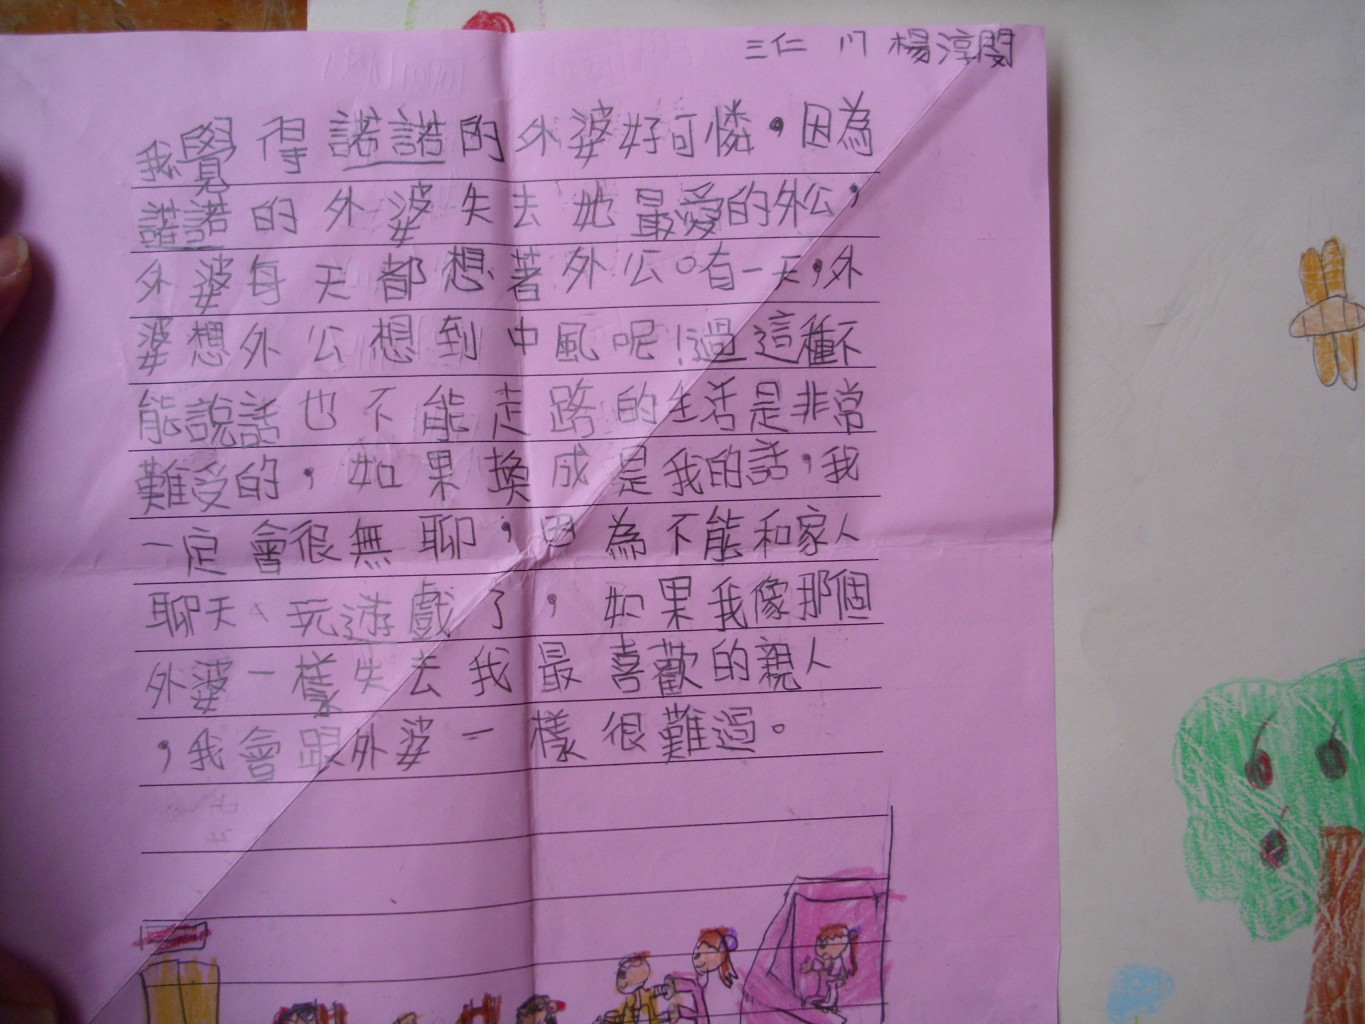 三仁 17 楊淳閔
我覺得諾諾的外婆好可憐，因為
諾諾的外婆失去她最愛的外公，
外婆每天都想著外公。有一天，外
婆想外公想到中風呢！過這種不
能說話也不能走路的生活是非常
難受的，如果換成是我的話，我
一定會很無聊，因為不能和家人
聊天、玩遊戲了，如果我像那個
外婆一樣失去我最喜歡的親人
，我會跟外婆一樣很難過。